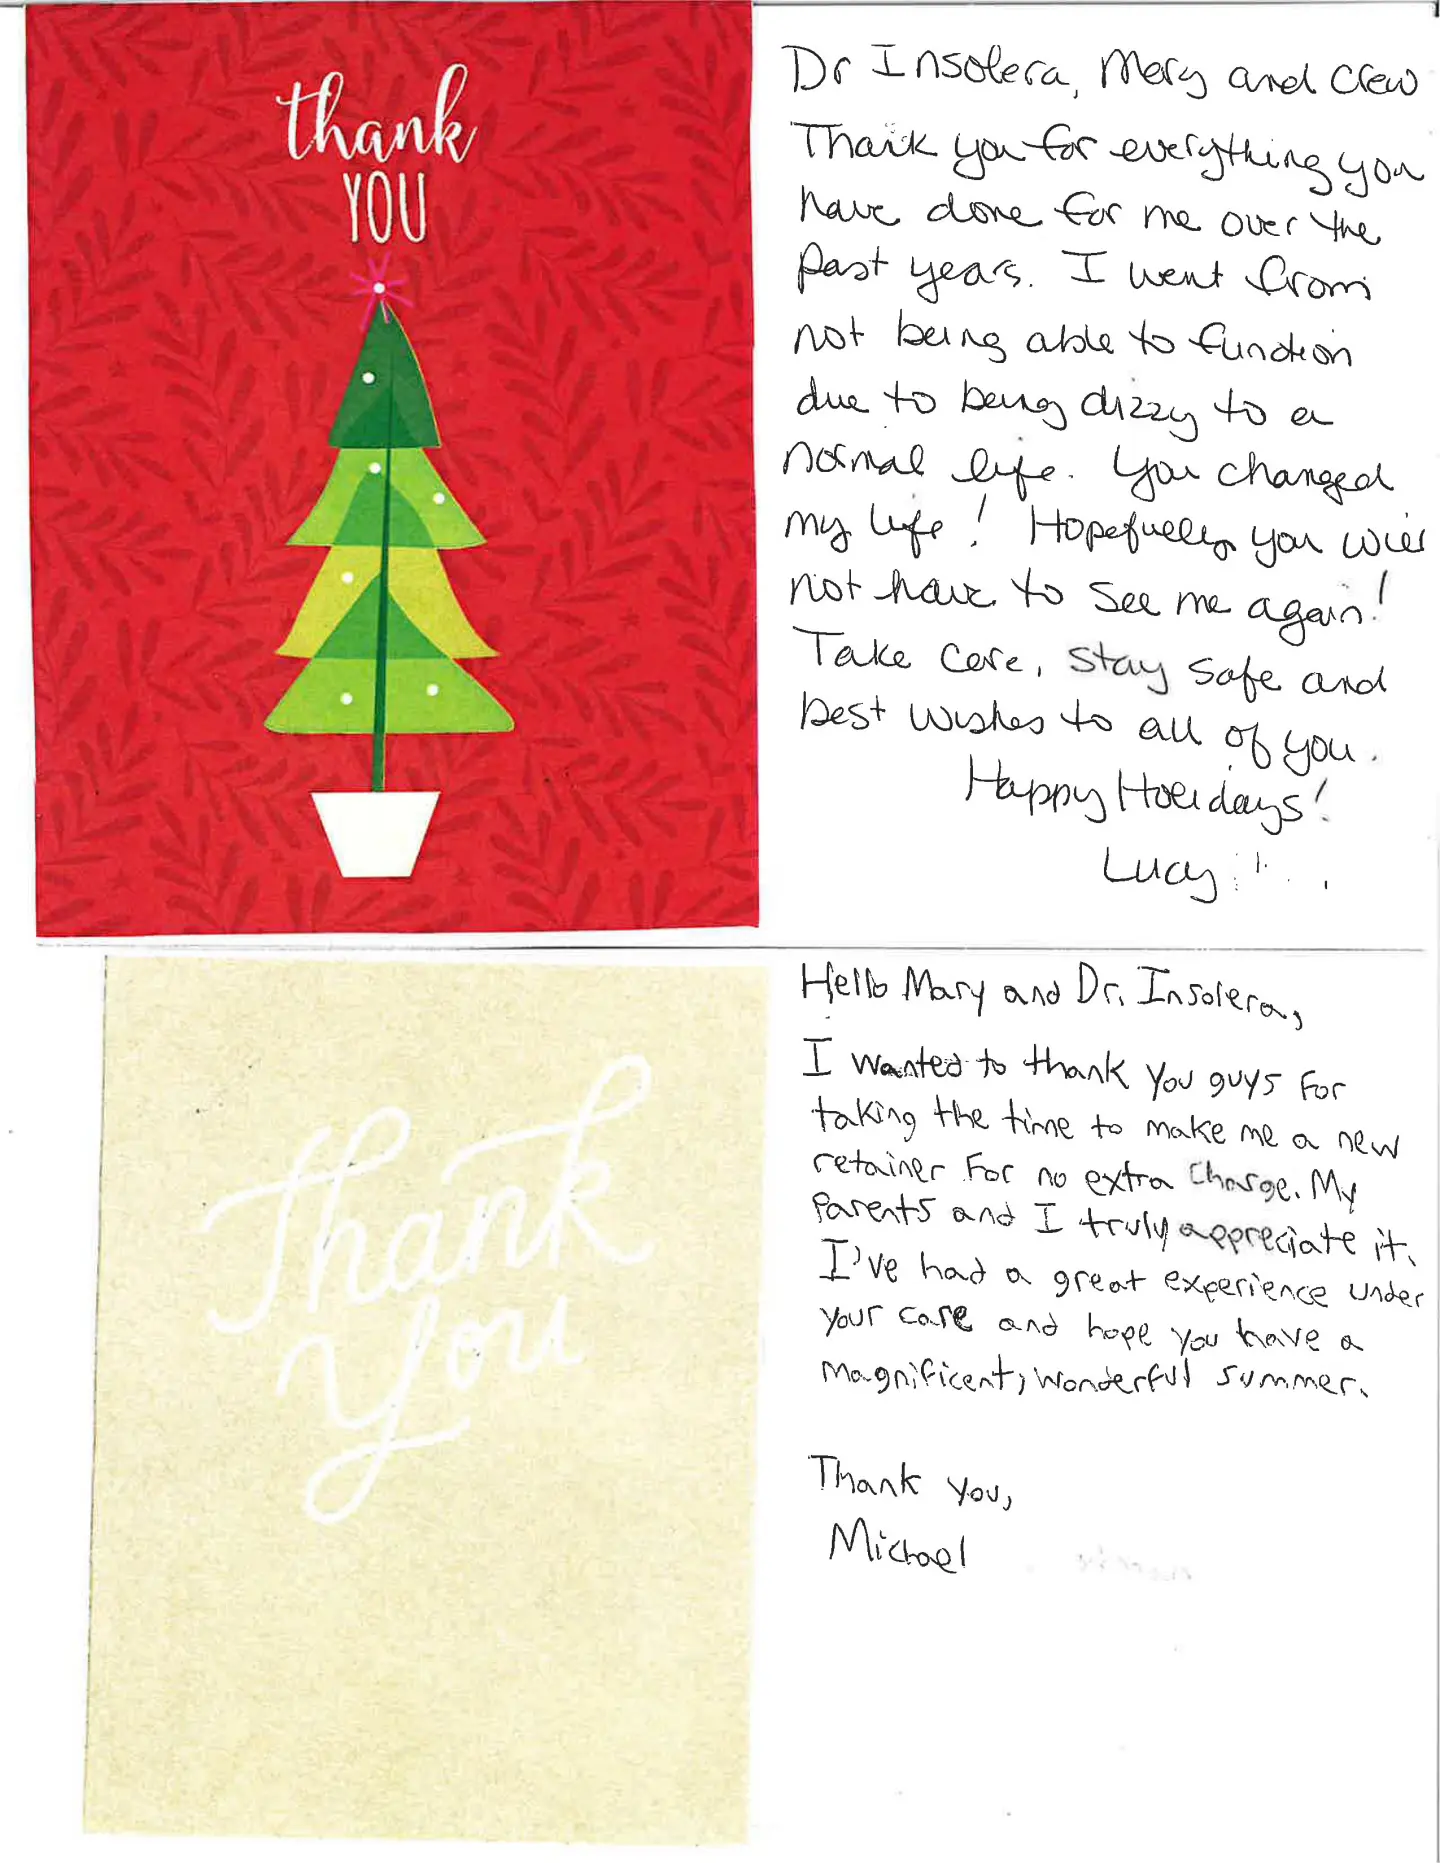 thank
YOU
Dr Insolera, Mary and crew
Thank you for everything you
have done for me over the
past years. I went from
not being able to function
due to being dizzy to a
normal life. You changed
my life! Hopefully you will
not have to see me again!
Take care, stay safe and
best wishes to all of you.
Happy Holidays!
Lucy
Thank
you
Hello Mary and Dr. Insolera,
I wanted to thank you guys for
taking the time to make me a new
retainer for no extra charge. My
parents and I truly appreciate it.
I've had a great experience under
your care and hope you have a
magnificent, wonderful summer.
Thank you,
Michael